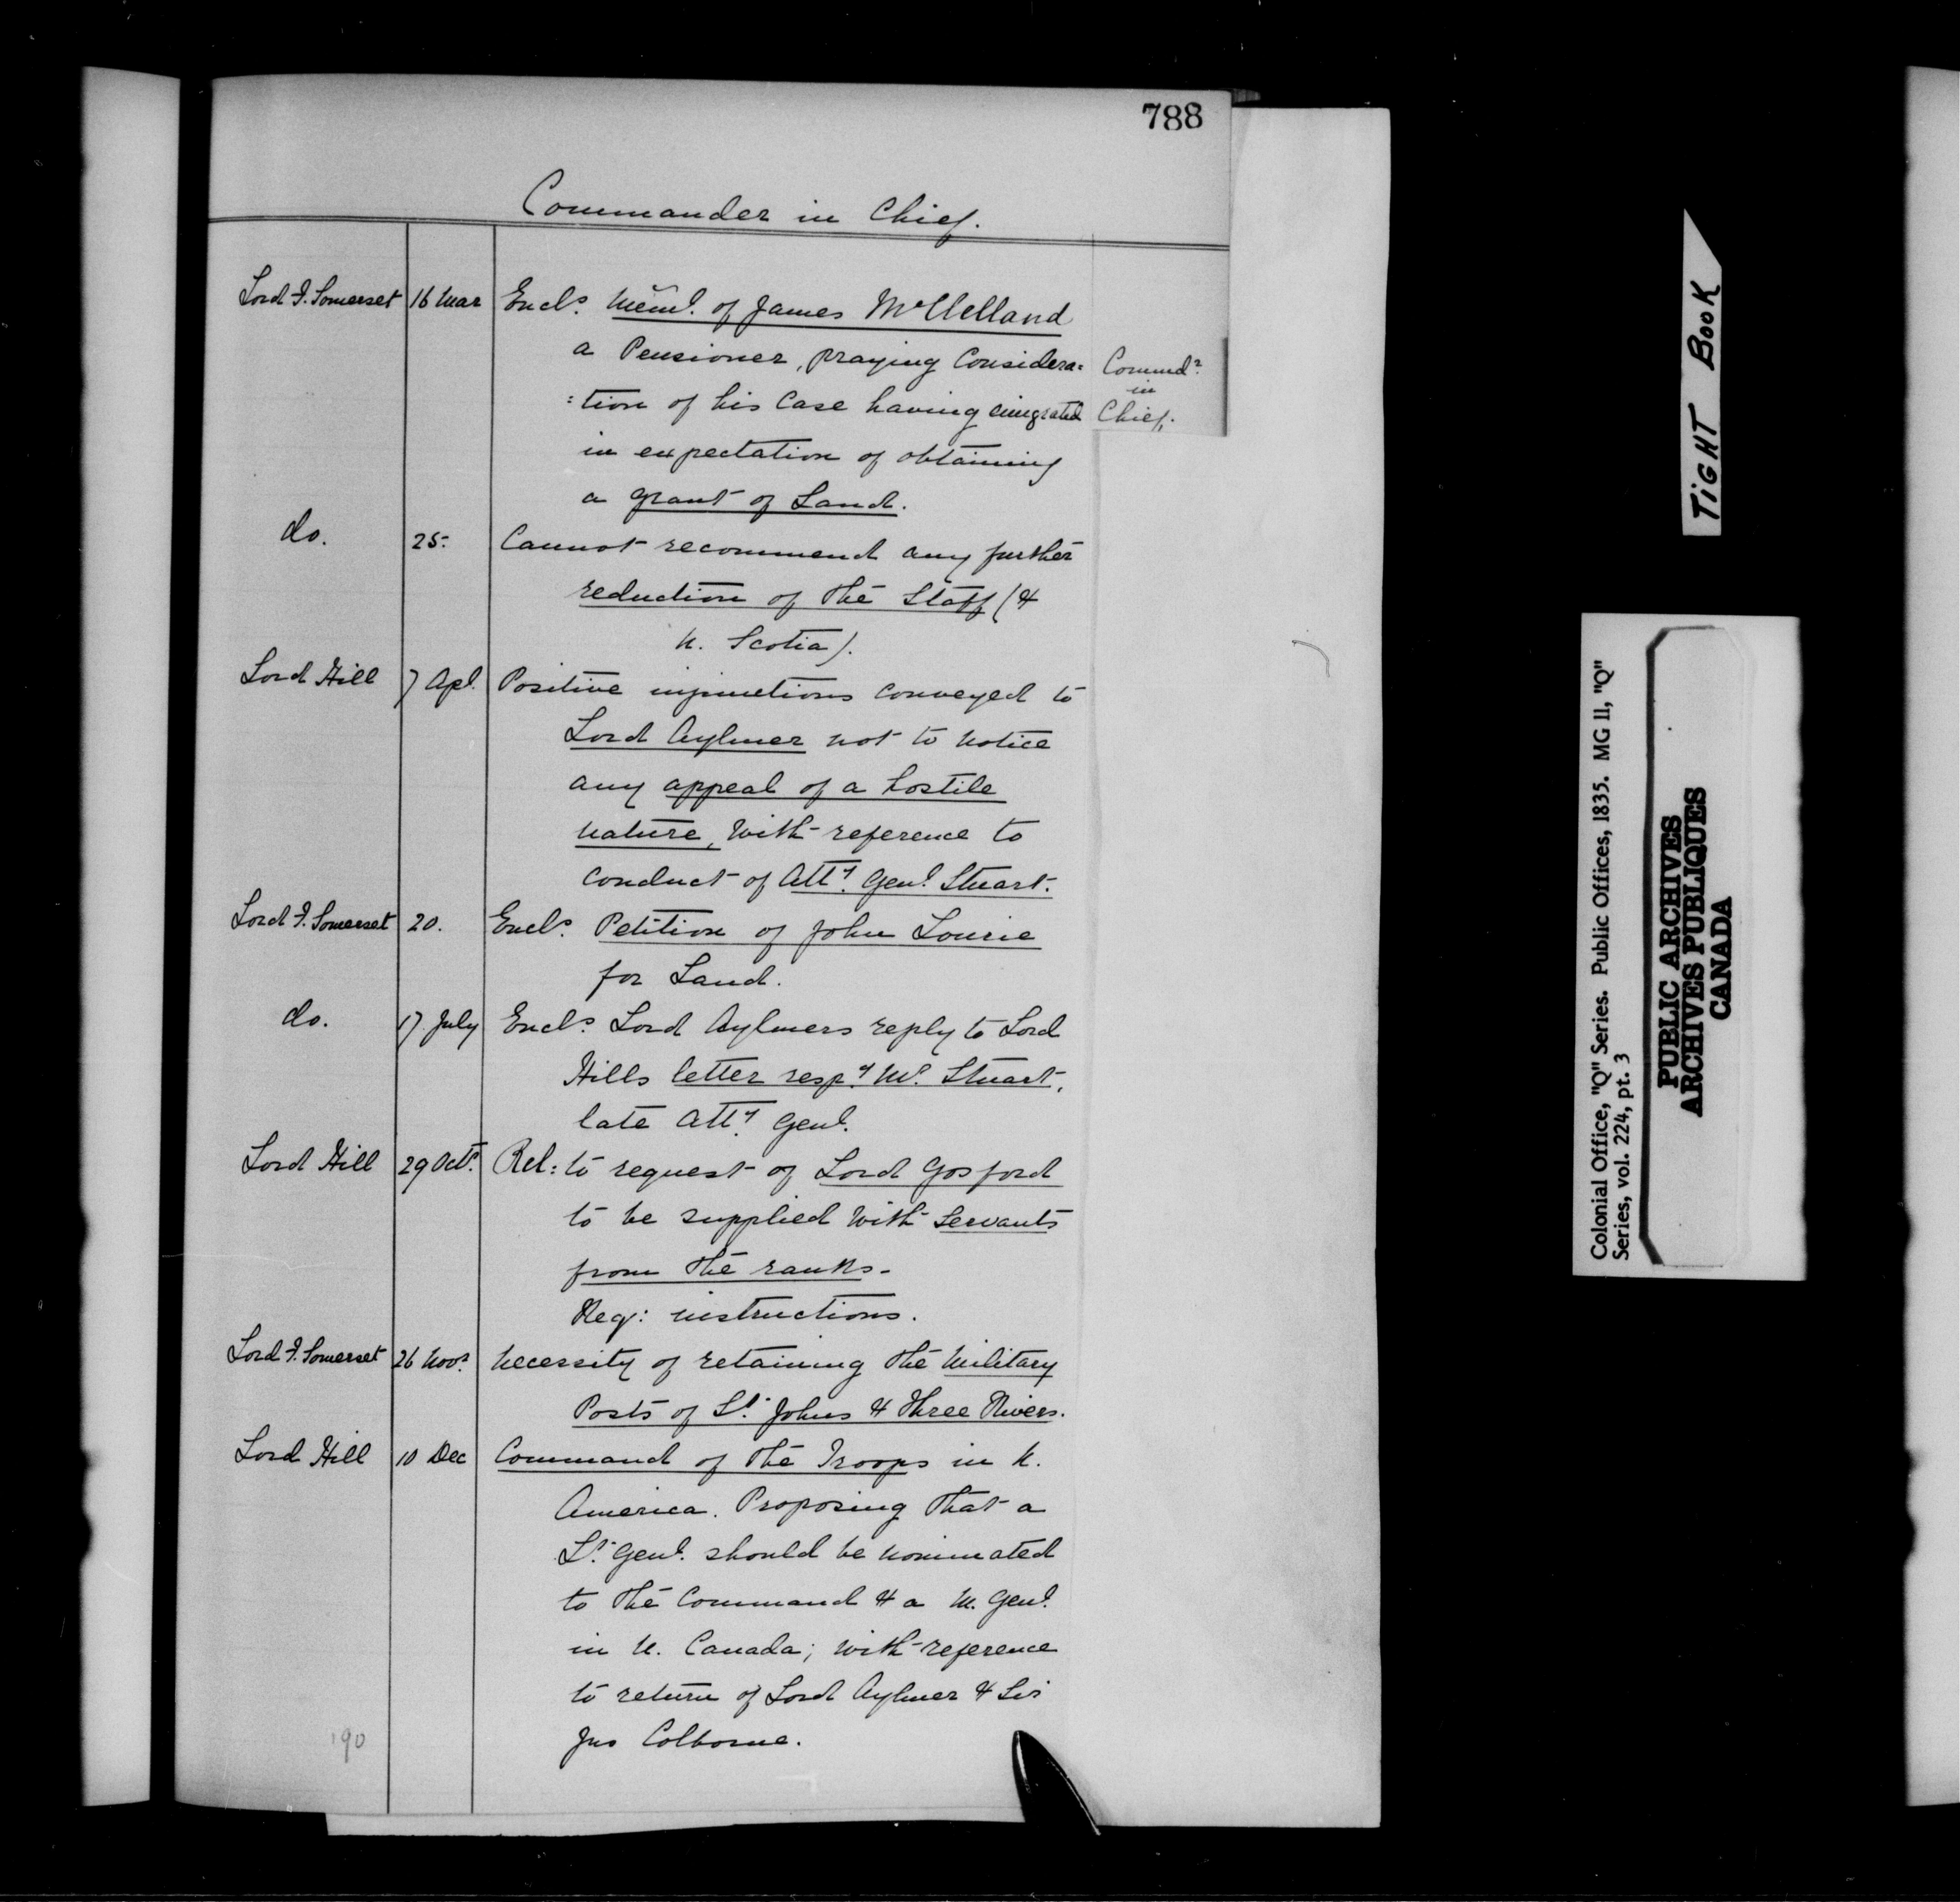 788
Commander in Chief.
Lord F. Somerset 16 Mar Encls. Meml. of James McClelland
a Pensioner, praying Considera= Commdr.
:tion of his Case having emigrated in Chief.
in expectation of obtaining
a grant of Land.
do. 25. Cannot recommend any further
reduction of the Staff (&
N. Scotia).
Lord Hill 7 Apl. Positive injunctions conveyed to
Lord Aylmer not to notice
any appeal of a hostile
nature, with reference to
conduct of Atty. Genl. Stuart.
Lord F. Somerset 20. Encls. Petition of John Lourie
for Land.
do. 17 July Encls. Lord Aylmers reply to Lord
Hills letter respg. Mr. Stuart,
late Atty. Genl.
Lord Hill 29 Octr. Rel: to request of Lord Gosford
to be supplied with Servants
from the ranks.
Req: instructions.
Lord F. Somerset 26 Novr. Necessity of retaining the Military
Posts of St. Johns & Three Rivers.
Lord Hill 10 Dec Command of the Troops in N.
America. Proposing that a
Lt. Genl. should be nominated
to the Command & a M. Genl.
in U. Canada; with reference
to return of Lord Aylmer & Sir
Jno Colborne.
190
TIGHT BOOK
Colonial Office, "Q" Series. Public Offices, 1835. MG 11, "Q"
Series, vol. 224, pt. 3
PUBLIC ARCHIVES
ARCHIVES PUBLIQUES
CANADA